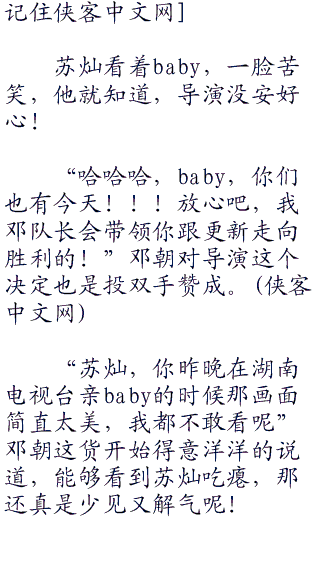 记住侠客中文网]
苏灿看着baby，一脸苦
笑，他就知道，导演没安好
心！
“哈哈哈，baby，你们
也有今天！！！放心吧，我
邓队长会带领你跟更新走向
胜利的！”邓朝对导演这个
决定也是投双手赞成。(侠客
中文网)
“苏灿，你昨晚在湖南
电视台亲baby的时候那画面
简直太美，我都不敢看呢”
邓朝这货开始得意洋洋的说
道，能够看到苏灿吃瘪，那
还真是少见又解气呢！